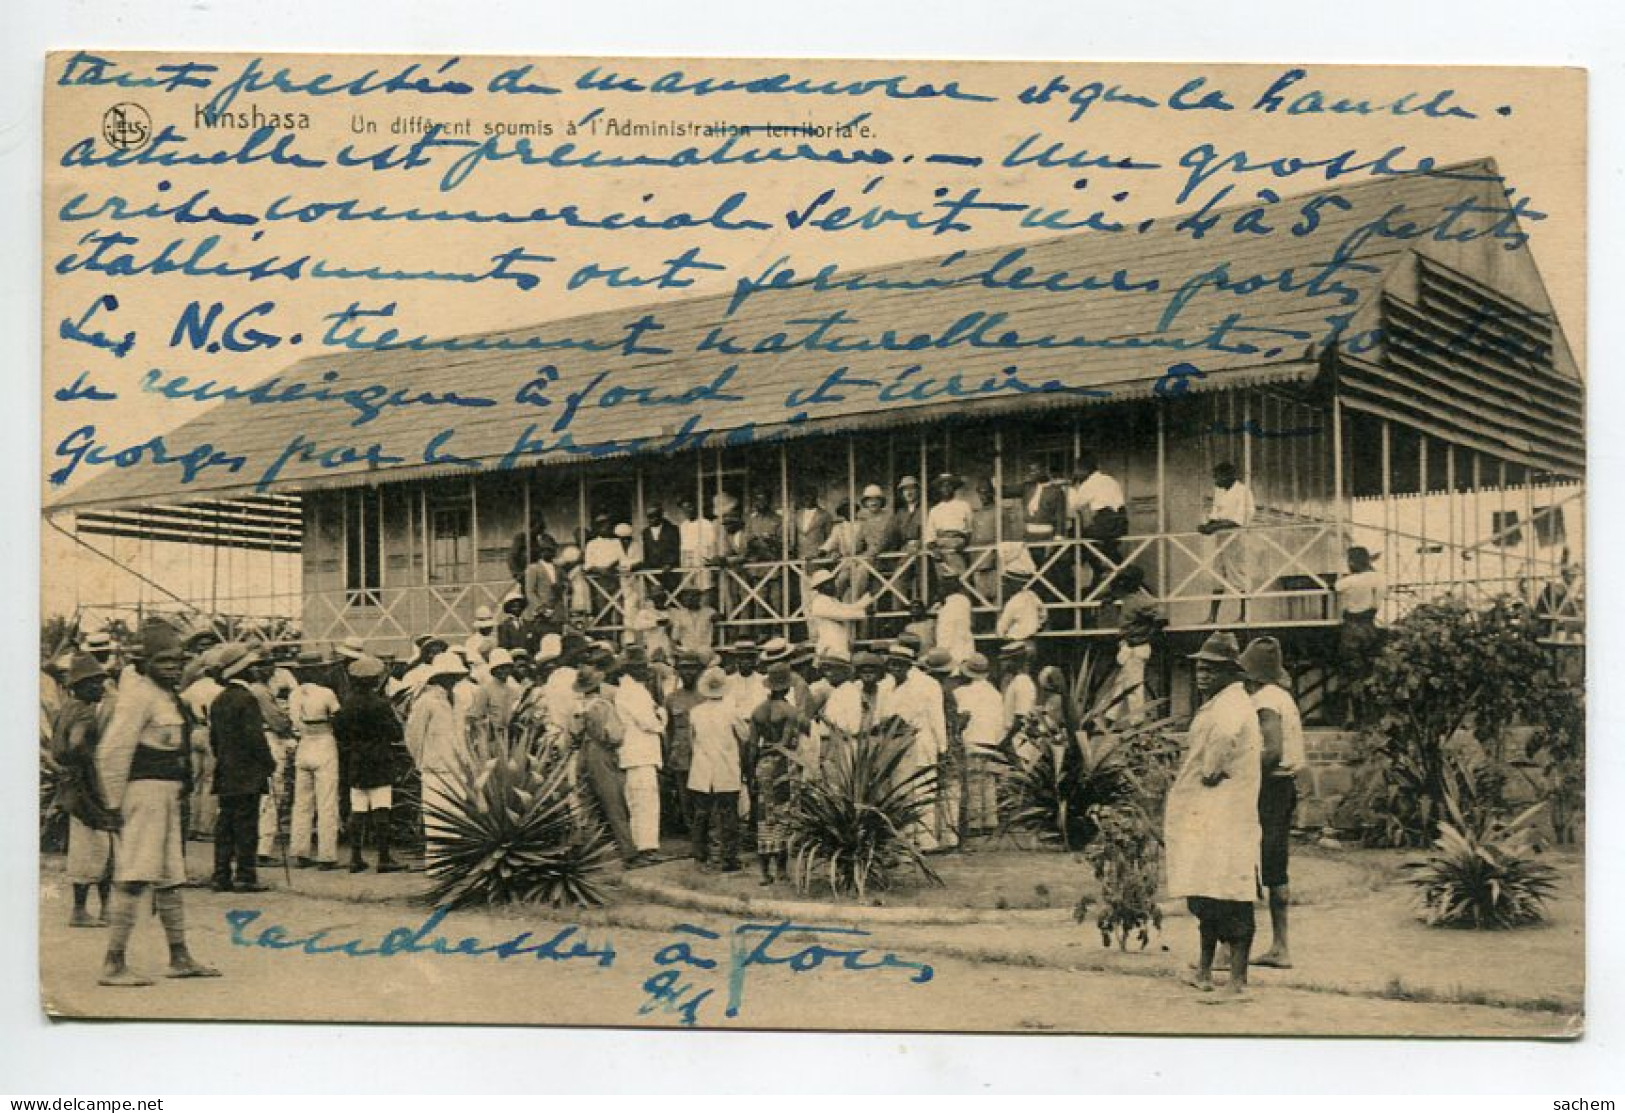 tant pressée de manœuvrer et que la hausse
Nels
Kinshasa Un différent soumis à l'Administration territoriale.
actuelle est prématurée. — Une grosse
crise commerciale sévit ici. 4 à 5 petits
établissements ont fermé leurs portes
Les N.G. tiennent naturellement.
se renseigner à fond et écrire à
Georges par le prochain
tendresses à tous
delcampe.net
sachem